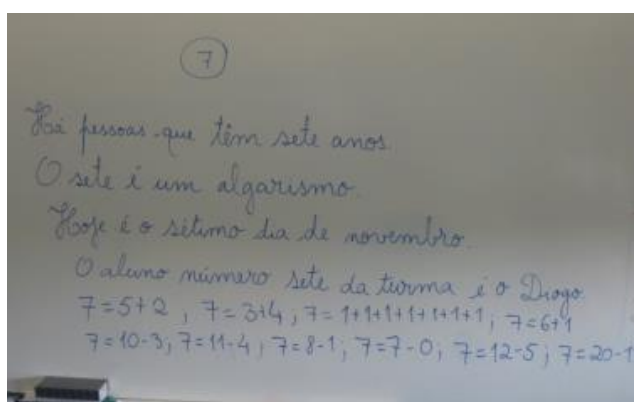 7
Há pessoas que têm sete anos.
O sete é um algarismo.
Hoje é o sétimo dia de novembro.
O aluno número sete da turma é o Diogo.
7=5+2 ; 7=3+4 ; 7=1+1+1+1+1+1+1 ; 7=6+1
7=10-3 ; 7=11-4 ; 7=8-1 ; 7=7-0 ; 7=12-5 ; 7=20-1